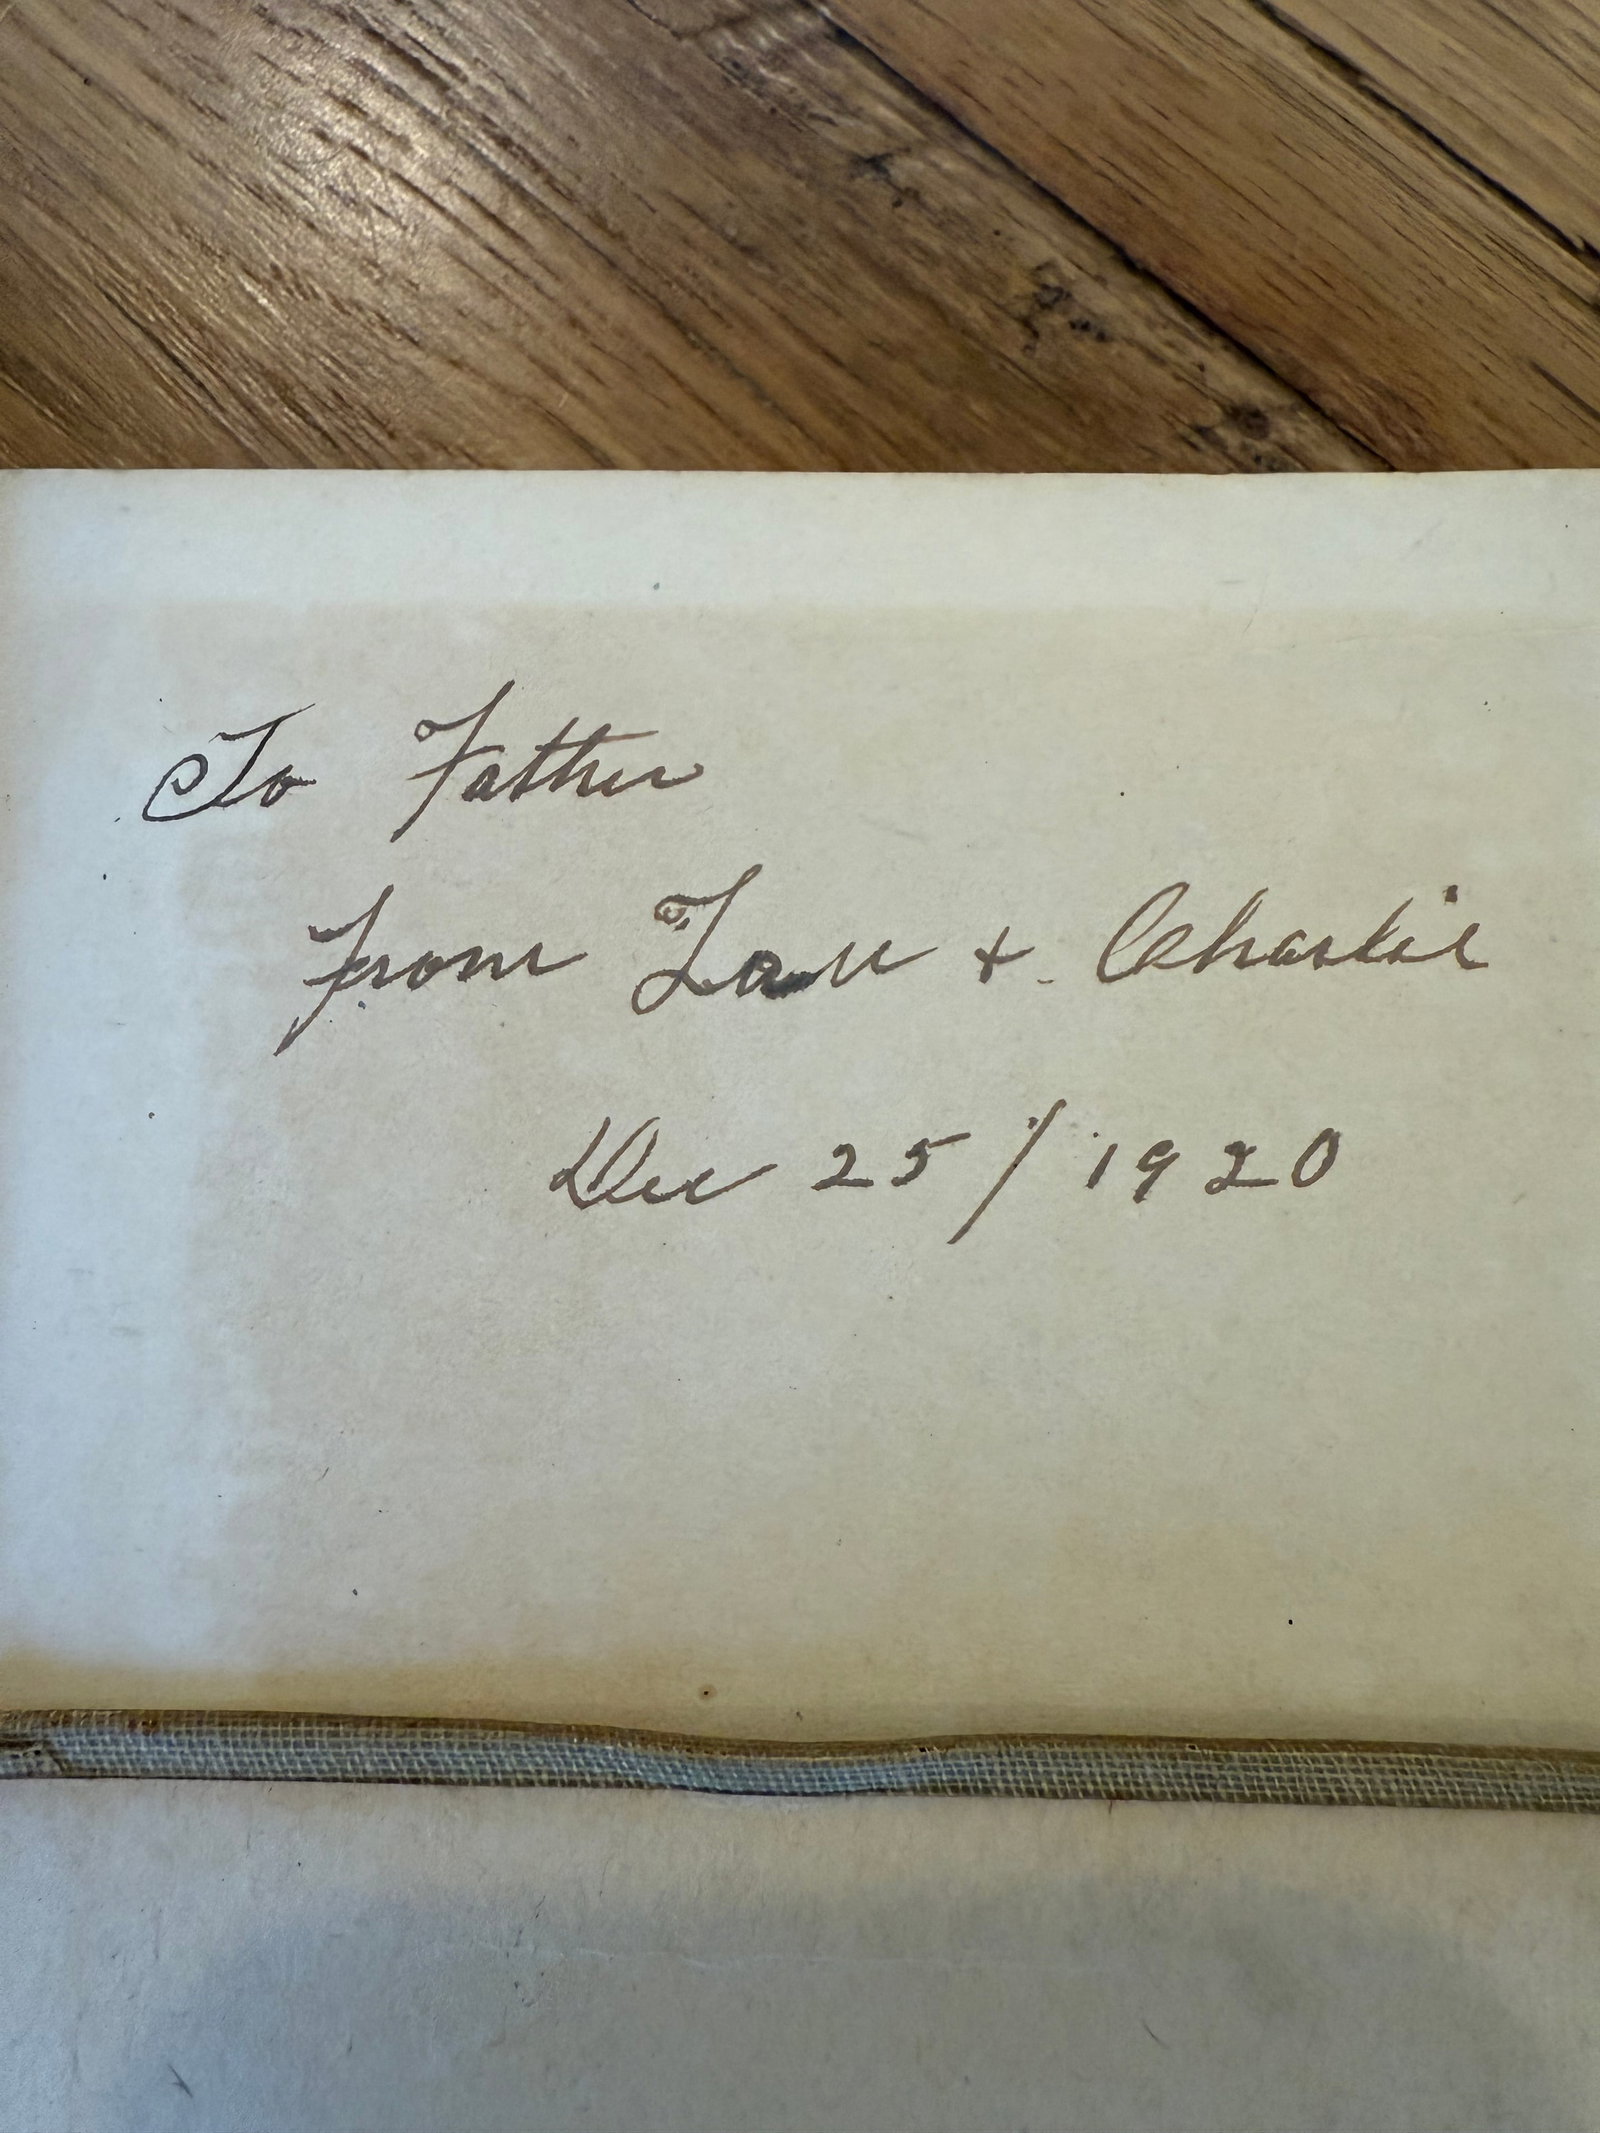 To Father
from & Charlie
Dec 25/1920